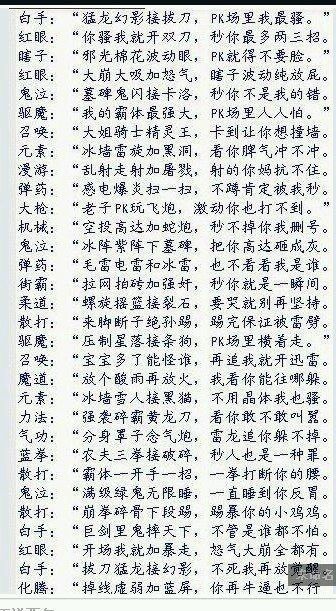 白手：“猛龙幻影接拔刀，PK场里我最骚。”
红眼：“你骚我就开双刀，秒你最多两三招。
瞎子：“邪光棉花波动眼，PK就得不要脸。”
红眼：“大崩大吸加怒气，瞎子波动纯放屁。
鬼泣：“墓碑鬼闪接卡洛，秒你不是我的错。
驱魔：“我的霸体最强大，PK场里人人怕。”
召唤：“大姐骑士精灵王，卡到让你想撞墙。
元素：“冰墙雷旋加黑洞，看你脾气冲不冲。
漫游：“乱射走射加屠戮，射的你妈抗不住。
弹药：“感电爆炎扫一扫，不蹲肯定被我秒。
大枪：“老子PK玩飞炮，激动你也打不到。”
机械：“空投高达加蛇炮，秒不掉你我删号。
鬼泣：“冰阵紫阵下墓碑，把你高达砸成灰。
弹药：“毛雷电雷和冰雷，也不看看我是谁。
街霸：“拉网拍砖加强奸，秒你就是一瞬间。
柔道：“螺旋摇篮接裂石，要哭就别再坚持。
散打：“来脚断子绝孙踢，踢完保证被雷劈。
驱魔：“压制星落接条狗，PK场里横着走。”
召唤：“宝宝多了能怪谁，再追我就开迅雷。
魔道：“放个酸雨再放火，我看你能往哪躲。
元素：“冰墙雪人接黑猫，不用晶体我也骚。
力法：“强袭碎霸黄龙刀，看你敢不敢叫嚣。
气功：“分身罩子念气炮，雷龙追你躲不掉。
蓝拳：“农夫三拳接破碎，秒人也是一种罪。
散打：“霸体一开手一招，一拳打断你的腰。
鬼泣：“满级绿鬼无限睡，一直睡到你反胃。
散打：“崩拳碎骨下段踢，踢暴你的小鸡鸡。
白手：“巨剑里鬼摔天下，不管是谁都不怕。
红眼：“开场就加暴走，怒气大崩全都有。
白手：“拔刀猛龙接幻影，不死我再放觉醒
化腾：“掉线虚弱加蓝屏，你再牛逼也不行